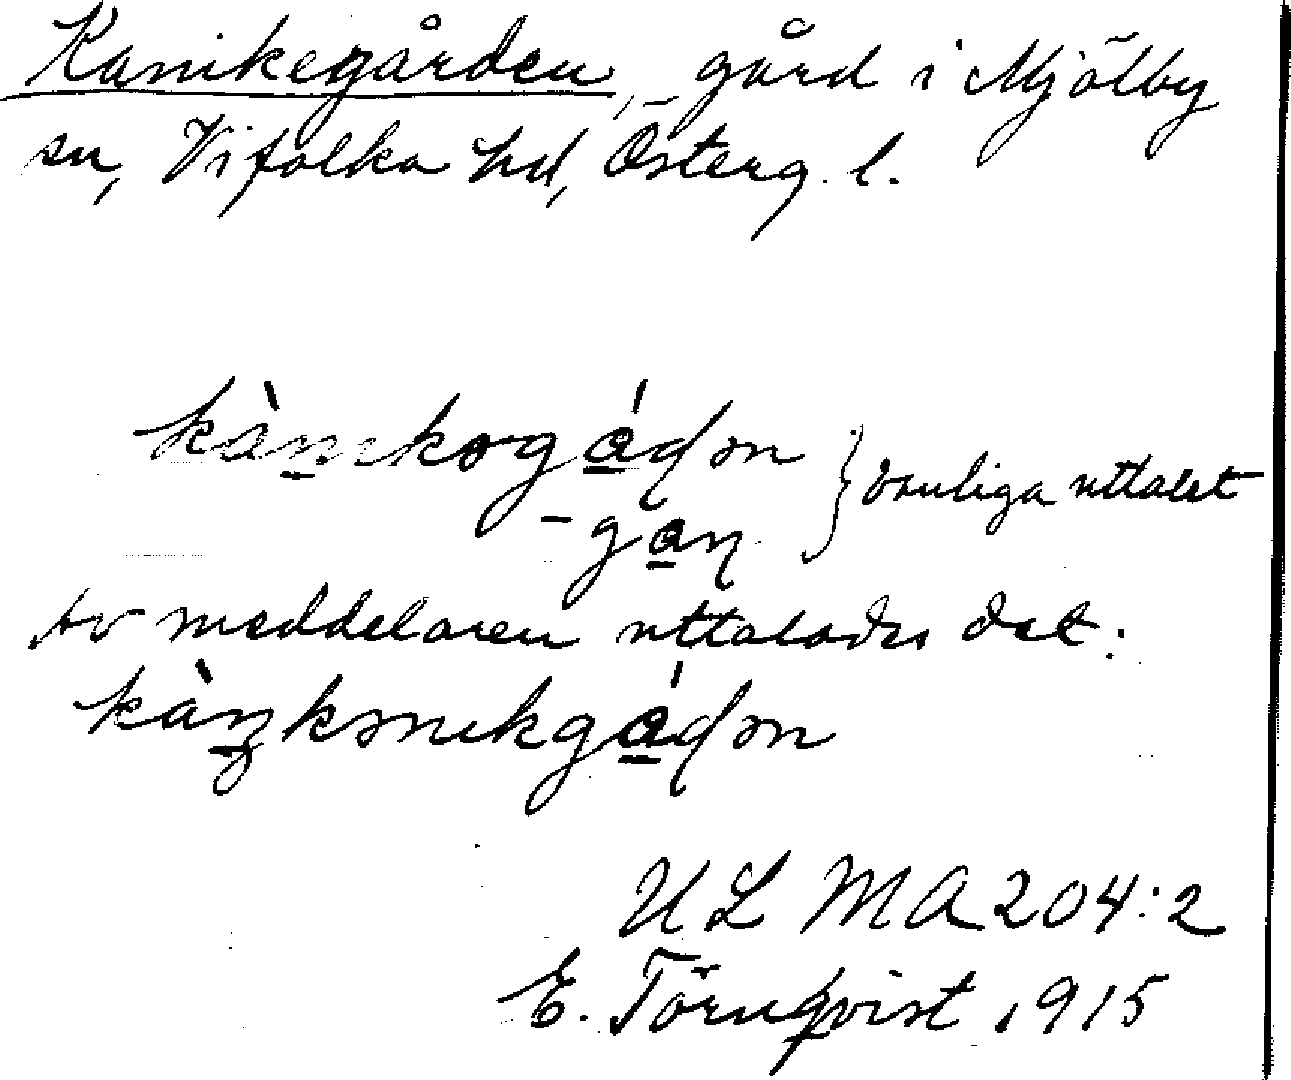 Kanikegården, gård i Mjölby
sn, Vifolka hd, Österg. l.
-gan
} vanliga uttalet
Av meddelaren uttalades det:
ULMA 204:2
E. Törnqvist 1915